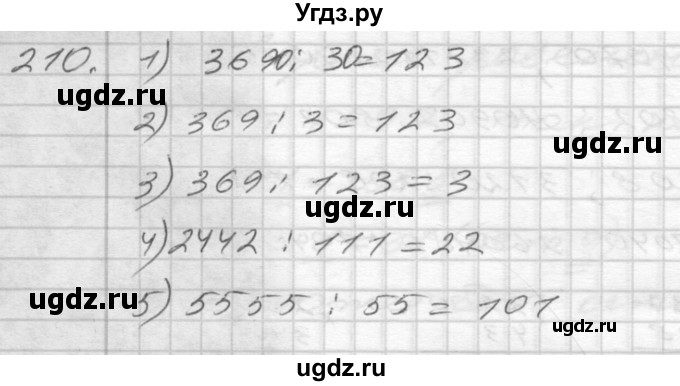 Угдз.ру
210. 1) 3690 : 30 = 123
2) 369 : 3 = 123
3) 369 : 123 = 3
4) 2442 : 111 = 22
5) 5555 : 55 = 101
ugdz.ru
ugdz.ru
ugdz.ru
ugdz.ru
ugdz.ru
ugdz.ru
ugdz.ru